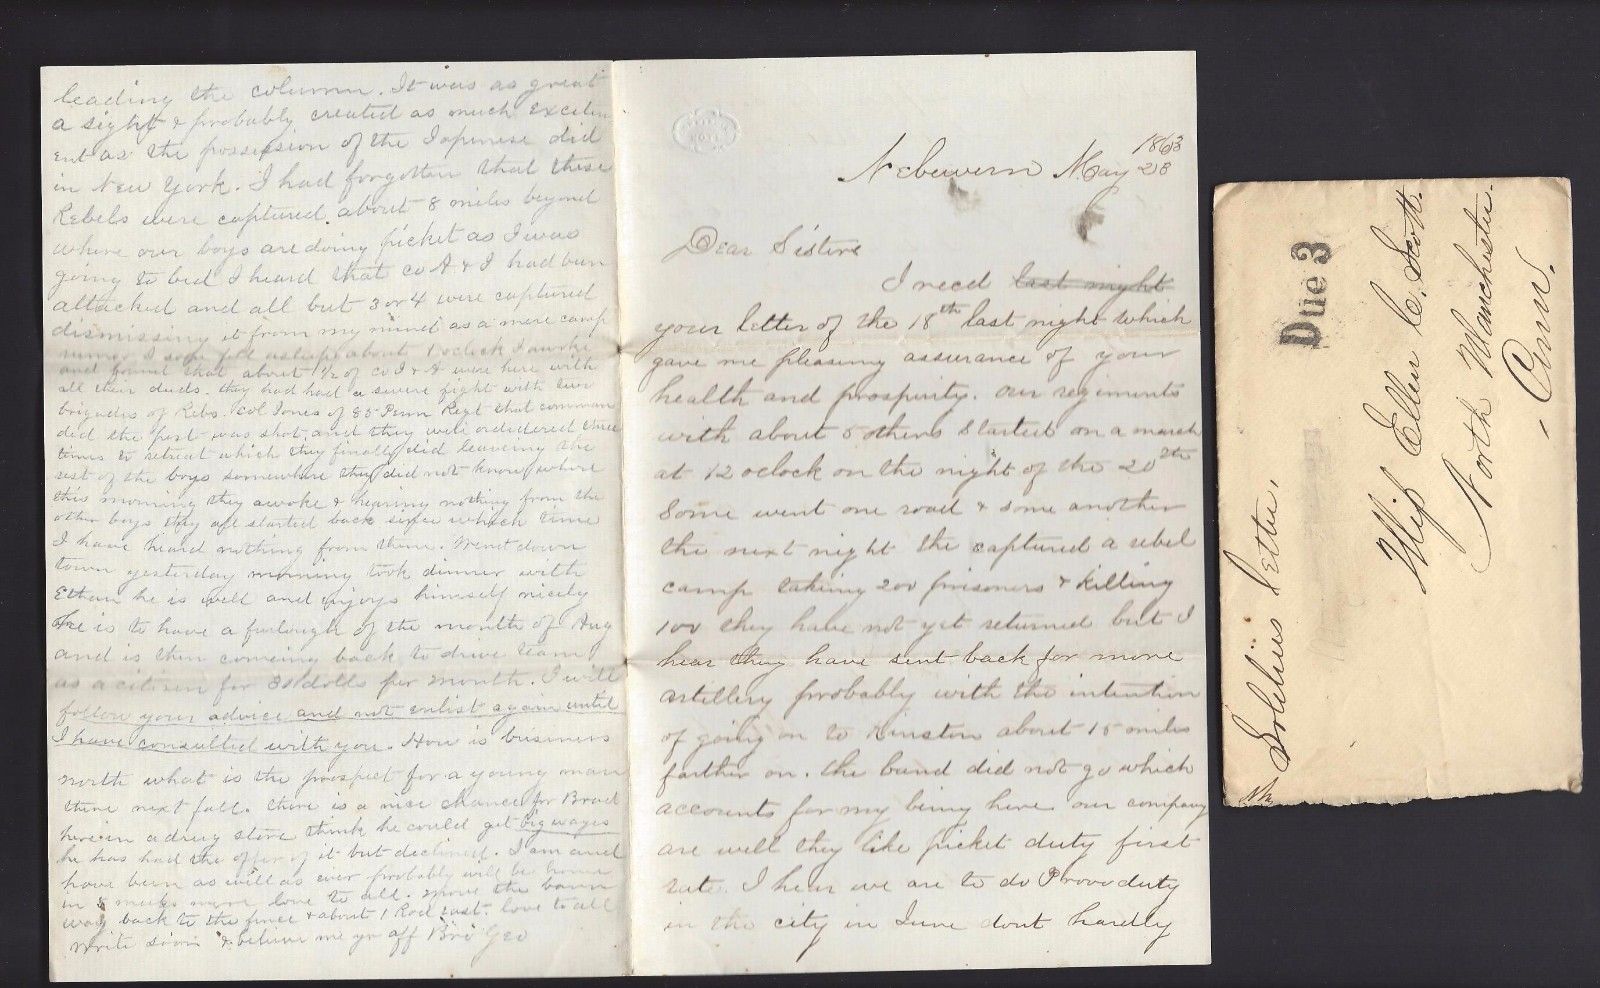 1863
Newbern May 28
Dear Sister
I recd last night
your letter of the 18th last night which
gave me pleasing assurance of your
health and prosperity. our regiments
with about 5 others started on a march
at 12 oclock on the night of the 20th
Some went one road & some another
the next night the captured a rebel
camp taking 200 prisoners & killing
100 they have not yet returned but I
hear they have sent back for more
artillery probably with the intention
of going on to Kinston about 15 miles
farther on. the band did not go which
accounts for my being here our company
are well they like picket duty first
rate. I hear we are to do Provo duty
in the city in June dont hardly
leading the column. It was as great
a sight & probably created as much excitem
ent as the possession of the Japinese did
in New York. I had forgotten that these
Rebels were captured about 8 miles beyond
where our boys are doing picket as I was
going to bed I heard that co A & I had been
attacked and all but 3 or 4 were captured
dismissing it from my mind as a mere camp
rumor I soon fell asleep about 1 oclock I awoke
and found that about 1/2 of co I & A were here with
all their duds. they had had a severe fight with two
brigades of Rebs. Col Jones of 85 Penn Regt that comman
ded the post was shot, and they were ordered three
times to retreat which they finally did leaveing the
rest of the boys somewhere they did not know where
this morning they awoke & hearing nothing from the
other boys they all started back since which time
I have heard nothing from them. Went down
town yesterday morning took dinner with
Ethan he is well and injoys himself nicely
He is to have a furlough of the month of Aug
and is then comeing back to drive team
as a citizen for 30 dolls per month. I will
follow your advice and not enlist again until
I have consulted with you. How is business
north what is the prospect for a young man
there next fall. there is a nice chance for Brad
here in a drug store think he could get big wages
he has had the offer of it but declined. I am and
have been as well as ever probably will be home
in 8 weeks more love to all. move the barn
way back to the fence & about 1 Rod east. love to all
write soon & believe me yr aff Bro Geo
Due 3
Soldiers Letter.
Miss Ellen C. Scott.
North Manchester.
Conn.